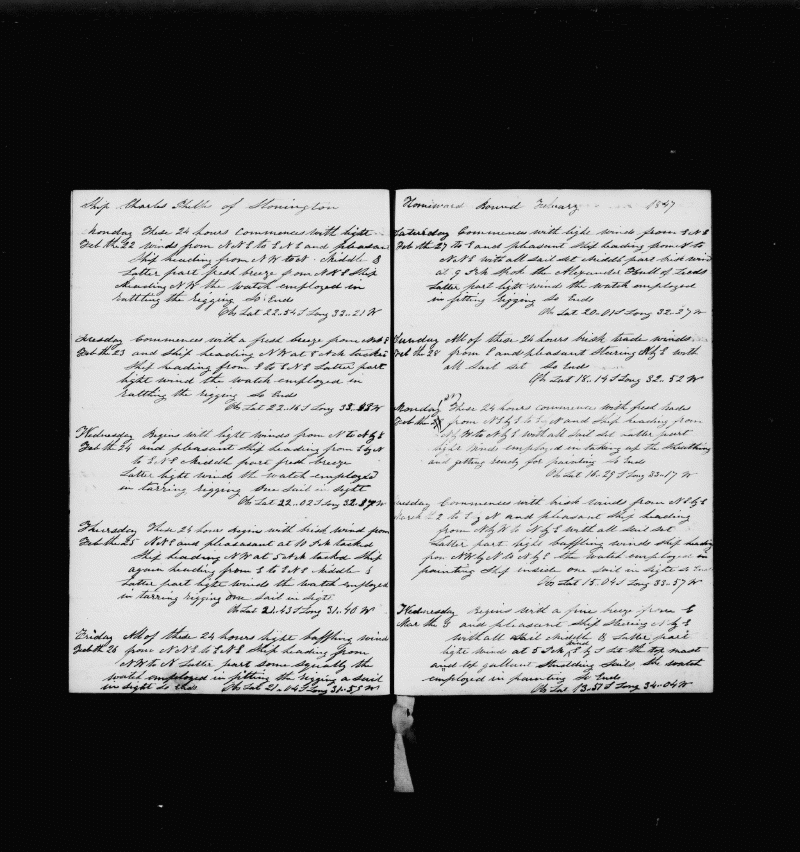 Ship Charles Phelps of Stonington
Monday These 24 hours Commences with light
Feb the 22 winds from N N E to E N E and pleasan
Ship heading from N W to N Middle &
Latter part fresh breeze from N N E Ship
heading N W the watch employed in
rattling the rigging So Ends
Ob Lat 22..34 S Long 32..21 W
Tuesday Commences with a fresh breeze from
Feb the 23 and Ship heading N W at 8 A M tacked
Ship heading from E to E N E Latter part
light wind the watch employed in
rattling the rigging So Ends
Ob Lat 22..16 S Long 33..03 W
Wednesday Begins with light winds from N to N by E
Feb the 24 and pleasant Ship heading from E by N
to E N E Middle part fresh breeze
Latter light winds the watch employed
in tarring rigging One Sail in Sight
Ob Lat 22..02 S Long 32..17 W
Thursday These 24 hour Begins with brisk wind from
Feb the 25 N N E and pleasasant at
Ship heading N W at 5 A M tacked Ship
again heading from E to E N E Middle &
Latter part light winds the watch employed
in tarring rigging one Sail in Sight
Ob Lat 21..43 S Long 31..40 W
Friday All of these 24 hours light baffling winds
Feb the 26 from N N E to E N E Ship heading from
N W to N Latter part some squally the
watch employed in fitting the rigging a sail
in sight So Ends Ob Lat 21..04 S Long 31..55 W
Homeward Bound February 1847
Saturday Commences with light winds from E N E
Feb the 27 to E and pleasant Ship heading from N to
N N E with all sail set Middle part brisk wind
at 9 Spok the Alexander of Leeds
Latter part light wind the watch employed
in fitting rigging So Ends
Ob Lat 20..01 S Long 32..27 W
Sunday All of these 24 hours brisk trade winds
Feb the 28 from E and pleasant Steering N by E with
all Sail Set So Ends
Ob Lat 18..14 S Long 32..52 W
Monday These 24 hours commence with fresh trades
from N E by E to E by N and Ship heading from
N by W to N by E with all Sail Set Latter part
light winds employed in taking up the Sheathing
and getting ready for painting So Ends
Ob Lat 16..29 S Long 33..17 W
uesday Commences with brisk winds from N E by E
2 to E by N and pleasant Ship heading
from N by W to N by E with all Sail Set
Latter part light baffling winds Ship heading
from N W by N to N by E the watch employed in
painting Ship inside one sail in Sight So Ends
Ob Lat 15..04 S Long 33..57 W
Wednesday Begins with a fine breeze from E
Mar the 3 and pleasant Ship Steering N by E
with all Sail Middle & Latter part
light wind at 5 A M wind E by S Set the top mast
and top gallant Studding Sails the watch
employed in painting So Ends
Ob Lat 13..51 S Long 34..04 W